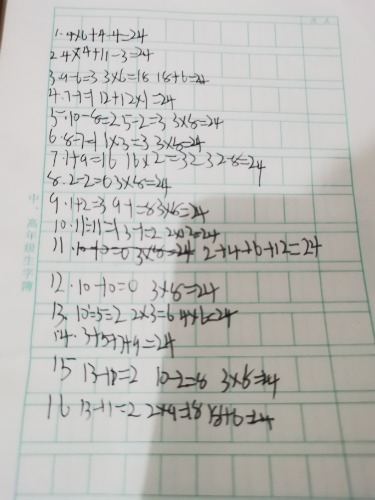 1. 4×6+4-4=24
2. 4×4+11-3=24
3. 9-6=3 3×6=18 18+6=24
4. 7-7=1 12+12×1=24
5. 10-8=2 5-2=3 3×8=24
6. 8-7=1 1×3=3 3×8=24
7. 7+9=16 16×2=32 32-8=24
8. 2-2=0 3×8=24
9. 1+2=3 9-1=8 3×8=24
10. 11÷11=1 3-1=2 2×12=24
11. 10-10=0 3×8=24 2+4+6+12=24
12. 10-10=0 3×8=24
13. 10÷5=2 2×3=6 4×6=24
14. 3+5+7+9=24
15 13-11=2 10-2=8 3×8=24
16 13-11=2 2×9=18 18+6=24
中、高年级生字簿